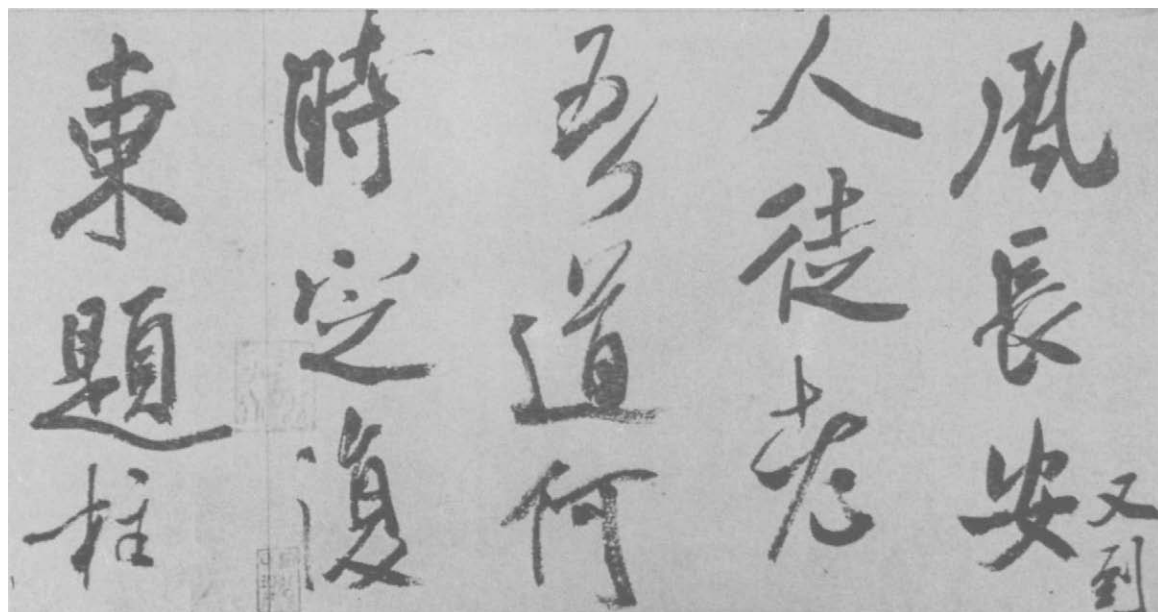 風長安
又到
人徒老
吾道何
時定復
東題柱